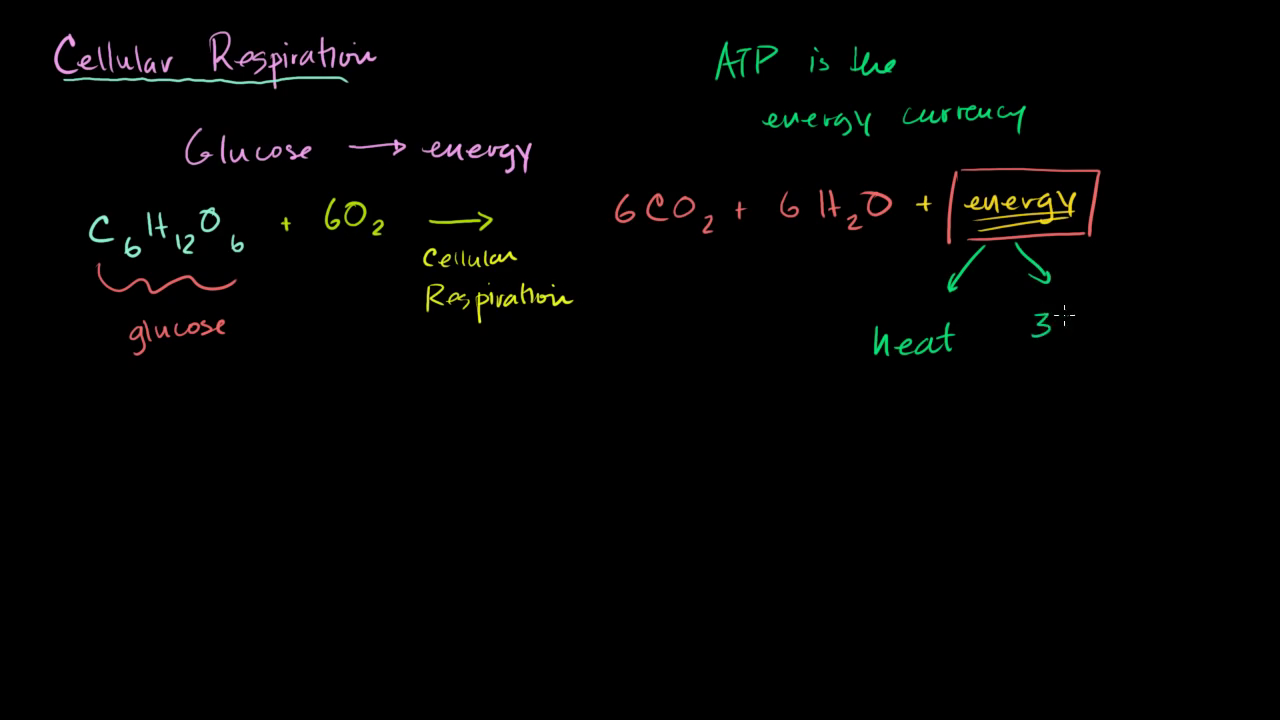 Cellular Respiration
ATP is the
energy currency
Glucose → energy
C₆H₁₂O₆ + 6O₂ → 6CO₂ + 6H₂O + energy
Cellular
Respiration
glucose
heat
3